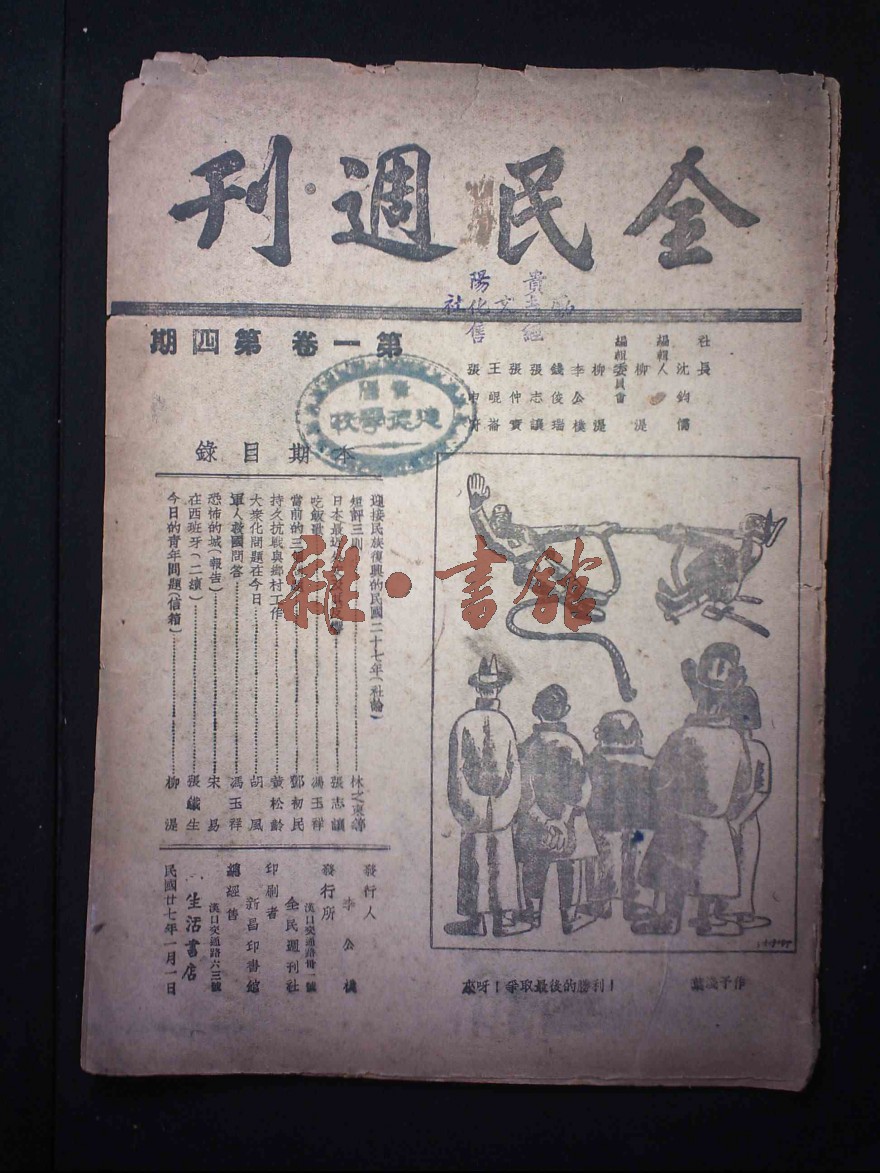 全民週刊
貴陽
文化
經售
社
第一卷 第四期
社長 沈鈞儒
編輯人 柳湜
編輯委員會
柳湜
李公樸
錢俊瑞
張志讓
張仲實
王崐崙
張申府
貴陽
達德學校
本期目錄
迎接民族復興的民國二十七年(社論)
短評三則 林之東等
日本最近 張志讓
吃飯 馮玉祥
當前的三 鄧初民
持久抗戰與鄉村工作 黃松齡
大衆化問題在今日 胡風
軍人救國問答 馮玉祥
恐怖的城(報告) 宋易
在西班牙(二續) 張鐵生
今日的青年問題(信箱) 柳湜
發行人 李公樸
發行所 全民週刊社
漢口交通路卅一號
印刷者 新昌印書館
總經售 生活書店
漢口交通路六三號
民國廿七年一月一日
來呀!爭取最後的勝利!
葉淺予作
雜·書館